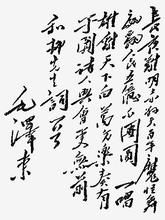 長夜難明赤縣天百年魔怪舞
翩躚人民五億不團圓一唱
雄雞天下白萬方樂奏有
于闐詩人興會更無前
和柳先生詞一首
毛澤東